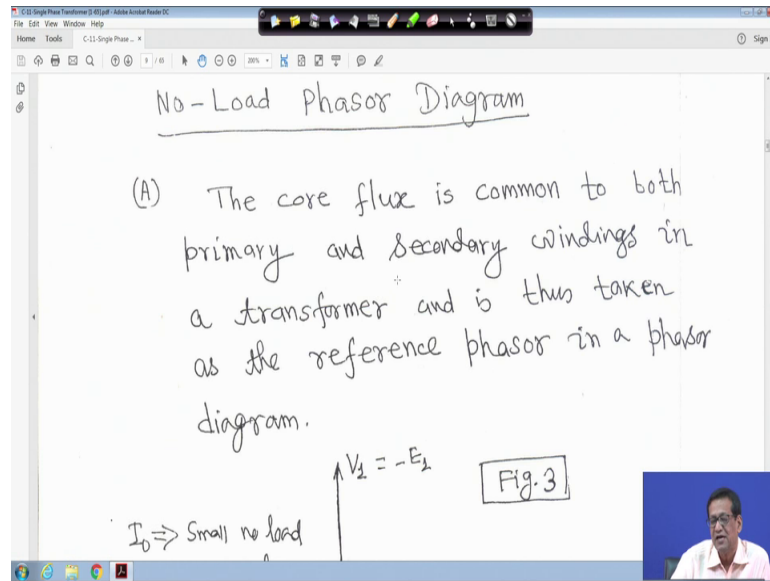 C-11-Single Phase Transformer [1-65].pdf - Adobe Acrobat Reader DC
File Edit View Window Help
Home Tools C-11-Single Phase ... × Sign
9 / 65 200%
No-Load Phasor Diagram
(A) The core flux is common to both
primary and secondary windings in
a transformer and is thus taken
as the reference phasor in a phasor
diagram.
V1 = -E1
Fig. 3
I0 ⇒ Small no load